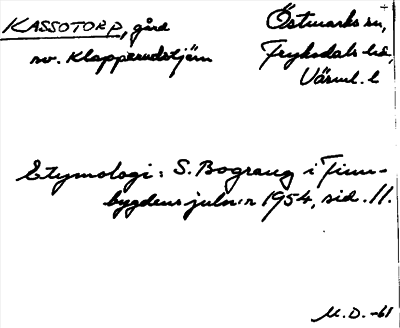 KASSOTORP, gård
Östmarks sn,
nv. Klapperudstjärn
Fryksdals hd,
Värml. l
Etymologi: S. Bograng i Finn-
bygdens julnr 1954, sid. 11.
M.D. -61